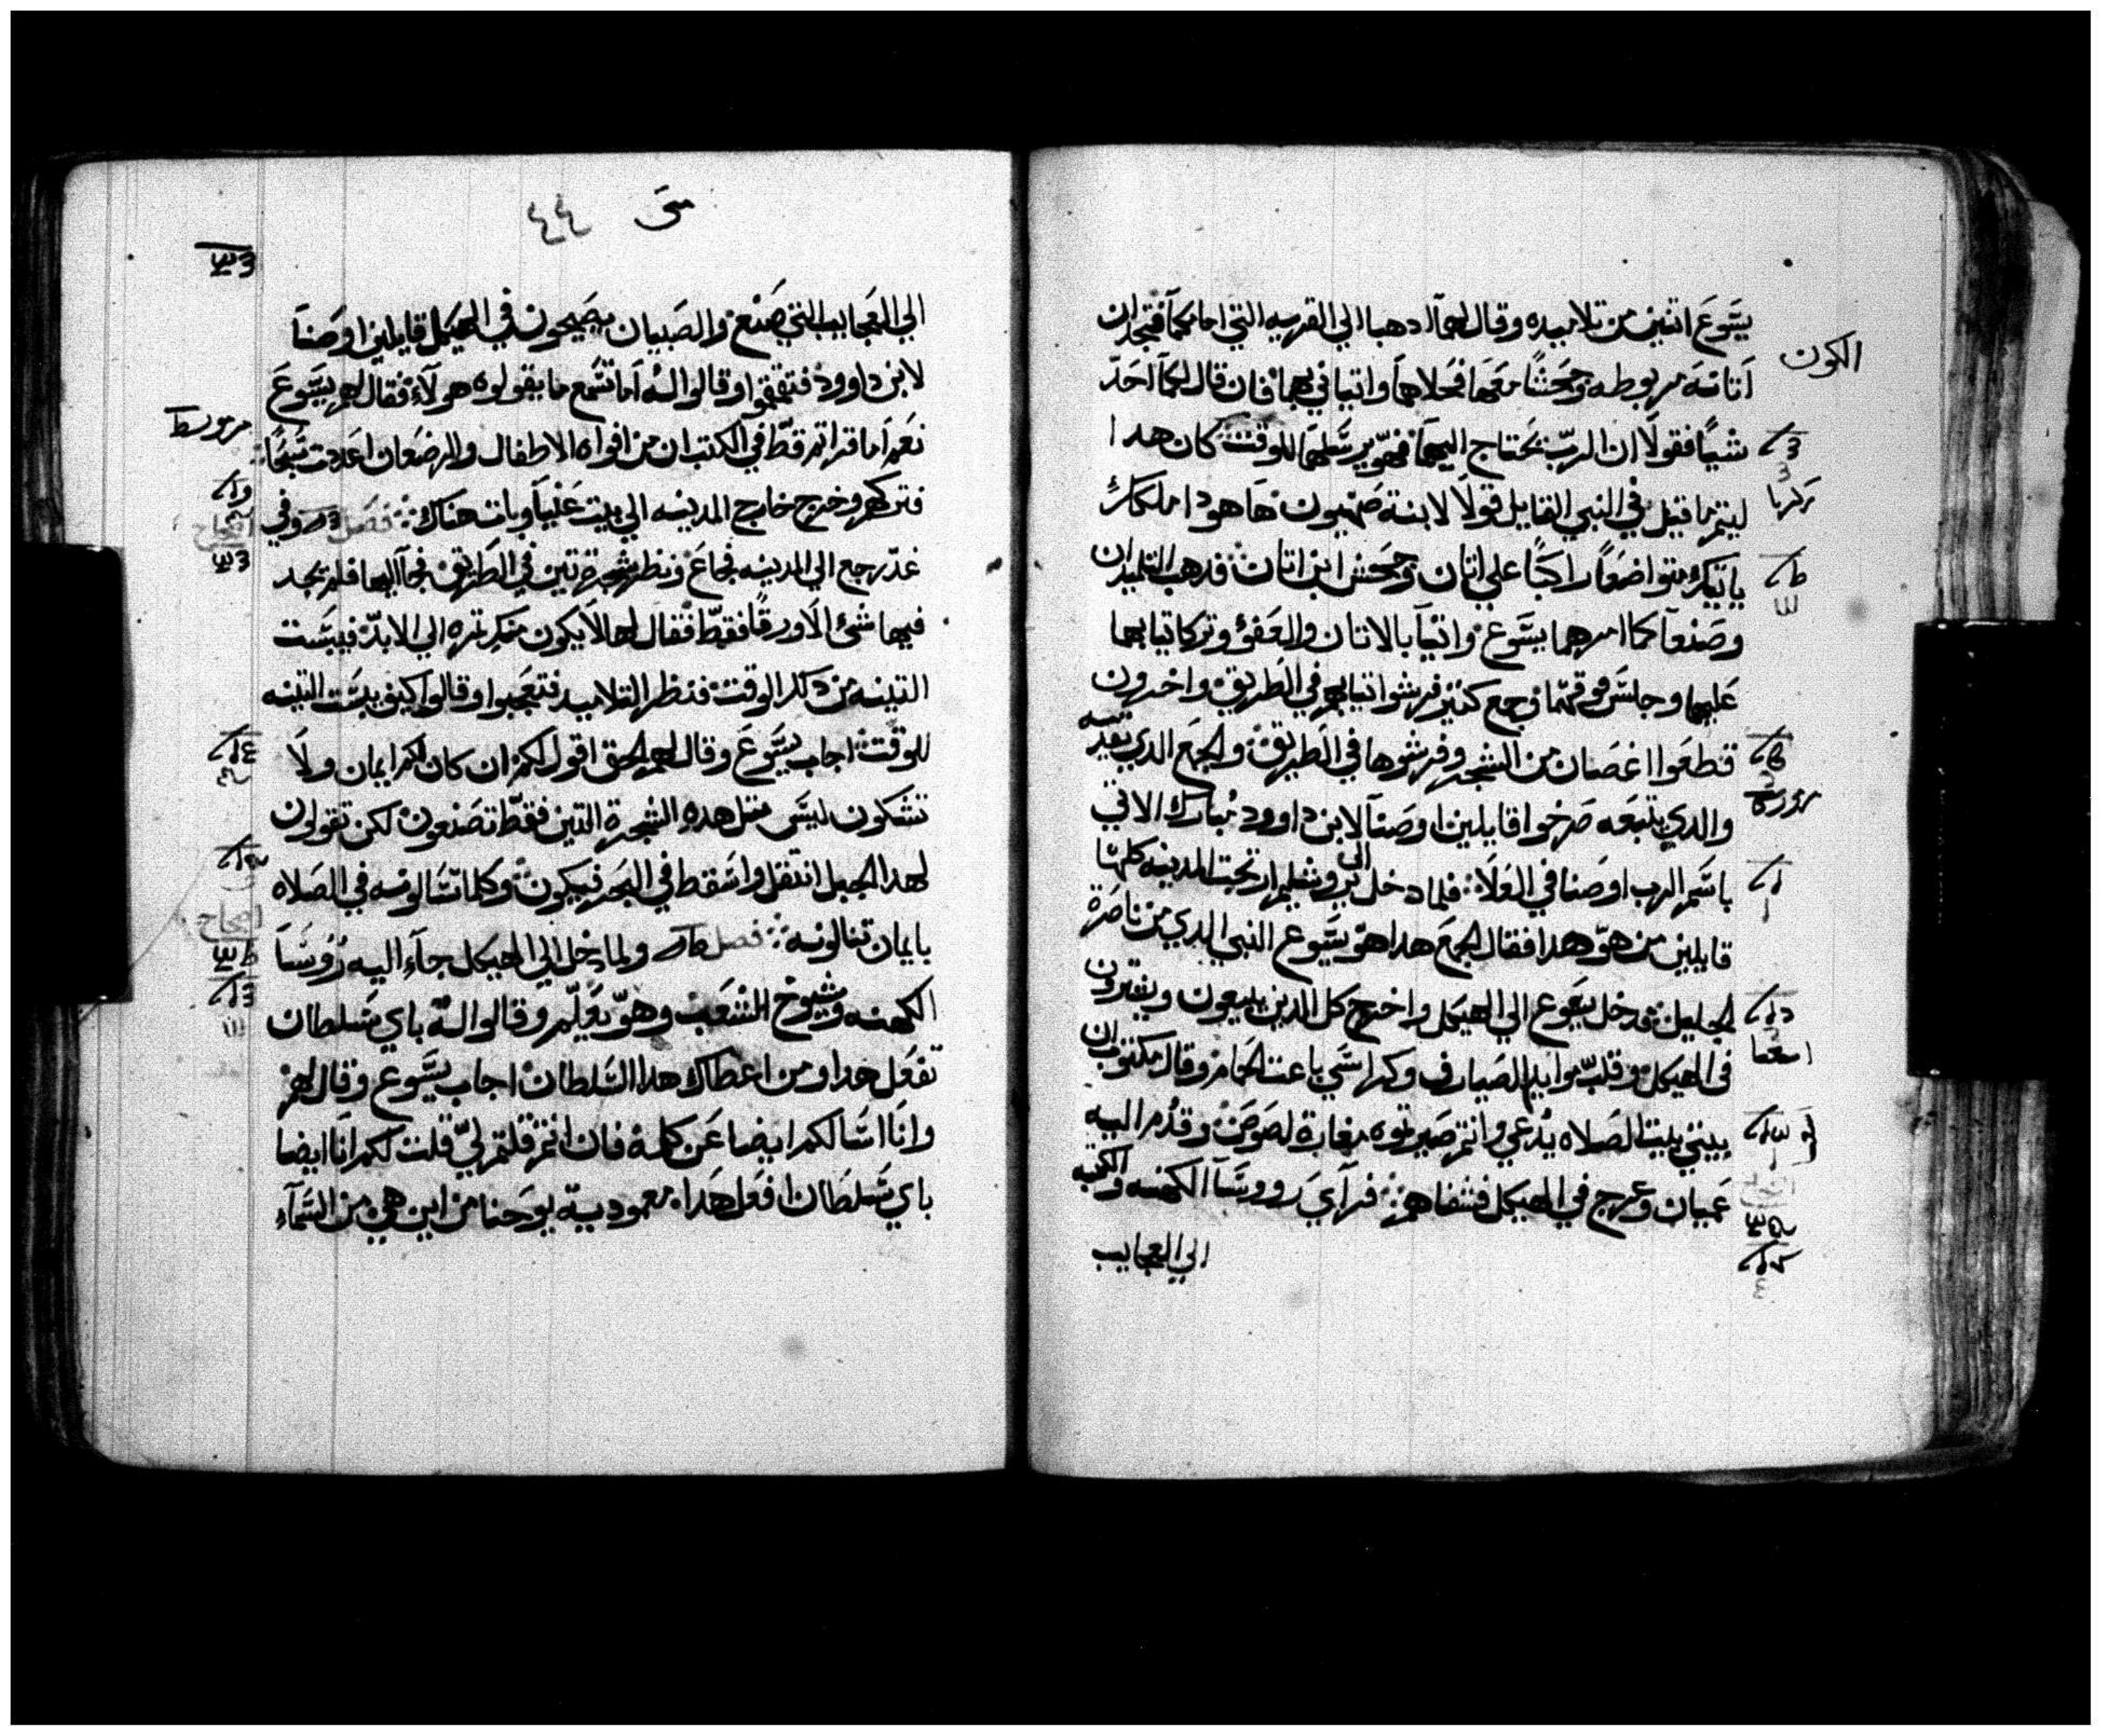 يسَّوعَ اتنين من تلاميده وقال لهمآ ادهبا الي القريه التي امامكمآ فتجدان
الكون
اَتانَة مربوطه وجَحَشًا معَها فحَلاهاَ واتيا في بهمآ فان قال لكمآ احَدّ
شيًا فقولَا ان الربّ يحَتاج اليهمآ فهوّ يرسَلهمَا للوقت كان هدا
زكريا
ليتم ما قيل في النبي القايل قولَا لابنة صَهيون هَا هودا ملككِ
ياتيكِ متواضعَاً راكبًا علي اتان وجَحَش ابن اتان فدهب التلميدان
وصَنعآ كما امرهما يسَّوعَ واتيآ بالاتان والعَفوُ وتركا تيابهما
عَليهما وجلسَ فوقهمّا وجمع كتير فرشوا تيابهم في الطَريق واخرون
قطعَوا اغصَان من الشجر وفرشوها في الطَريق والجمعَ الدي تقدمه
والدي يتبعَه صَرخوا قايلين اوصَنآ لابن داوود مُبارك الاتي
باسَّم الرب اوصَنا في العَلَا فلما دخل الي يروشليم ارتجت المدينه كلها
قايلين من هوّ هدا فقال الجمعَ هدا هوّ يسَّوع النبي الدي من ناصَرة
الجليل فدخل يسَوع الي الهيكل واخرج كل الدين يبيعون ويشترون
اشعيا
في الهيكل وقلبّ موايد الصَيارف وكراسَي باعة الحمام وقال مكتوب ان
بيتي بيت الصَلاه يُدعي وانتم صَيرتوه مغارة لصَوصَ وقدُم اليه
عَميان وعَرج في الهيكل فشفاهم فرآيَ رووسَآ الكهنه والكتبه
الي العجايب
متى ٤٤
الي العَجايب التي صَنع والصَبيان يصَيحون في الهيكل قايلين اوصَناَ
لابن داوود فتقمقموا وقالوا لهُ اَما تسَّمع ما يقولوه هولآءِ فقال لهم يسَّوعَ
مزمور
نعَم اَما قراتم قطّ في الكتب ان من افواه الاطفال والرضعَان اعَددت سَبَّحًا
فتركهم وخرج خارج المدينه الي بيت عَنياَ وبات هناك فصَل وفي
اصحاح
غدّ رجع الي المدينه فجاعَ ونظر شجرة تين في الطَريق فجآ اليها فلم يجد
فيها شئ الَا ورقًا فقطّ فقال لها لَا يكون منكِ تمره الي الابدّ فيبسَّت
التينه من دلك الوقت فنظر التلاميد فتعَجبوا وقالوا كيف يبسَّت التينه
للوقت اجاب يسَّوعَ وقال لهم الحق اقول لكم ان كان لكم ايمان ولَا
تشكون ليسَّ متل هدهِ الشجرة التين فقطّ تصَنعون لكن تقولون
لهدا الجبل انتقل واسَقط في البَحر فيكون وكلما تسَالونه في الصَلاه
اصحاح
بايمان تنالونه فصل ولما دخل الي الهيكل جآءَ اليه رُوسَآ
الكهنه وشيوخ الشعَب وهوّ يعَلّم وقالوا لهُ باي سَلطان
تفعَل هدا ومن اعطاك هدا السَلطان اجاب يسَّوعَ وقال لهم
وانَا اسَالكم ايضا عَن كلمة فان انتم قلتم ليّ قلت لكم انَا ايضا
باي سَلطَان افعَل هَدا معمودية يوحَنا من اين هي من السَّمآءِ